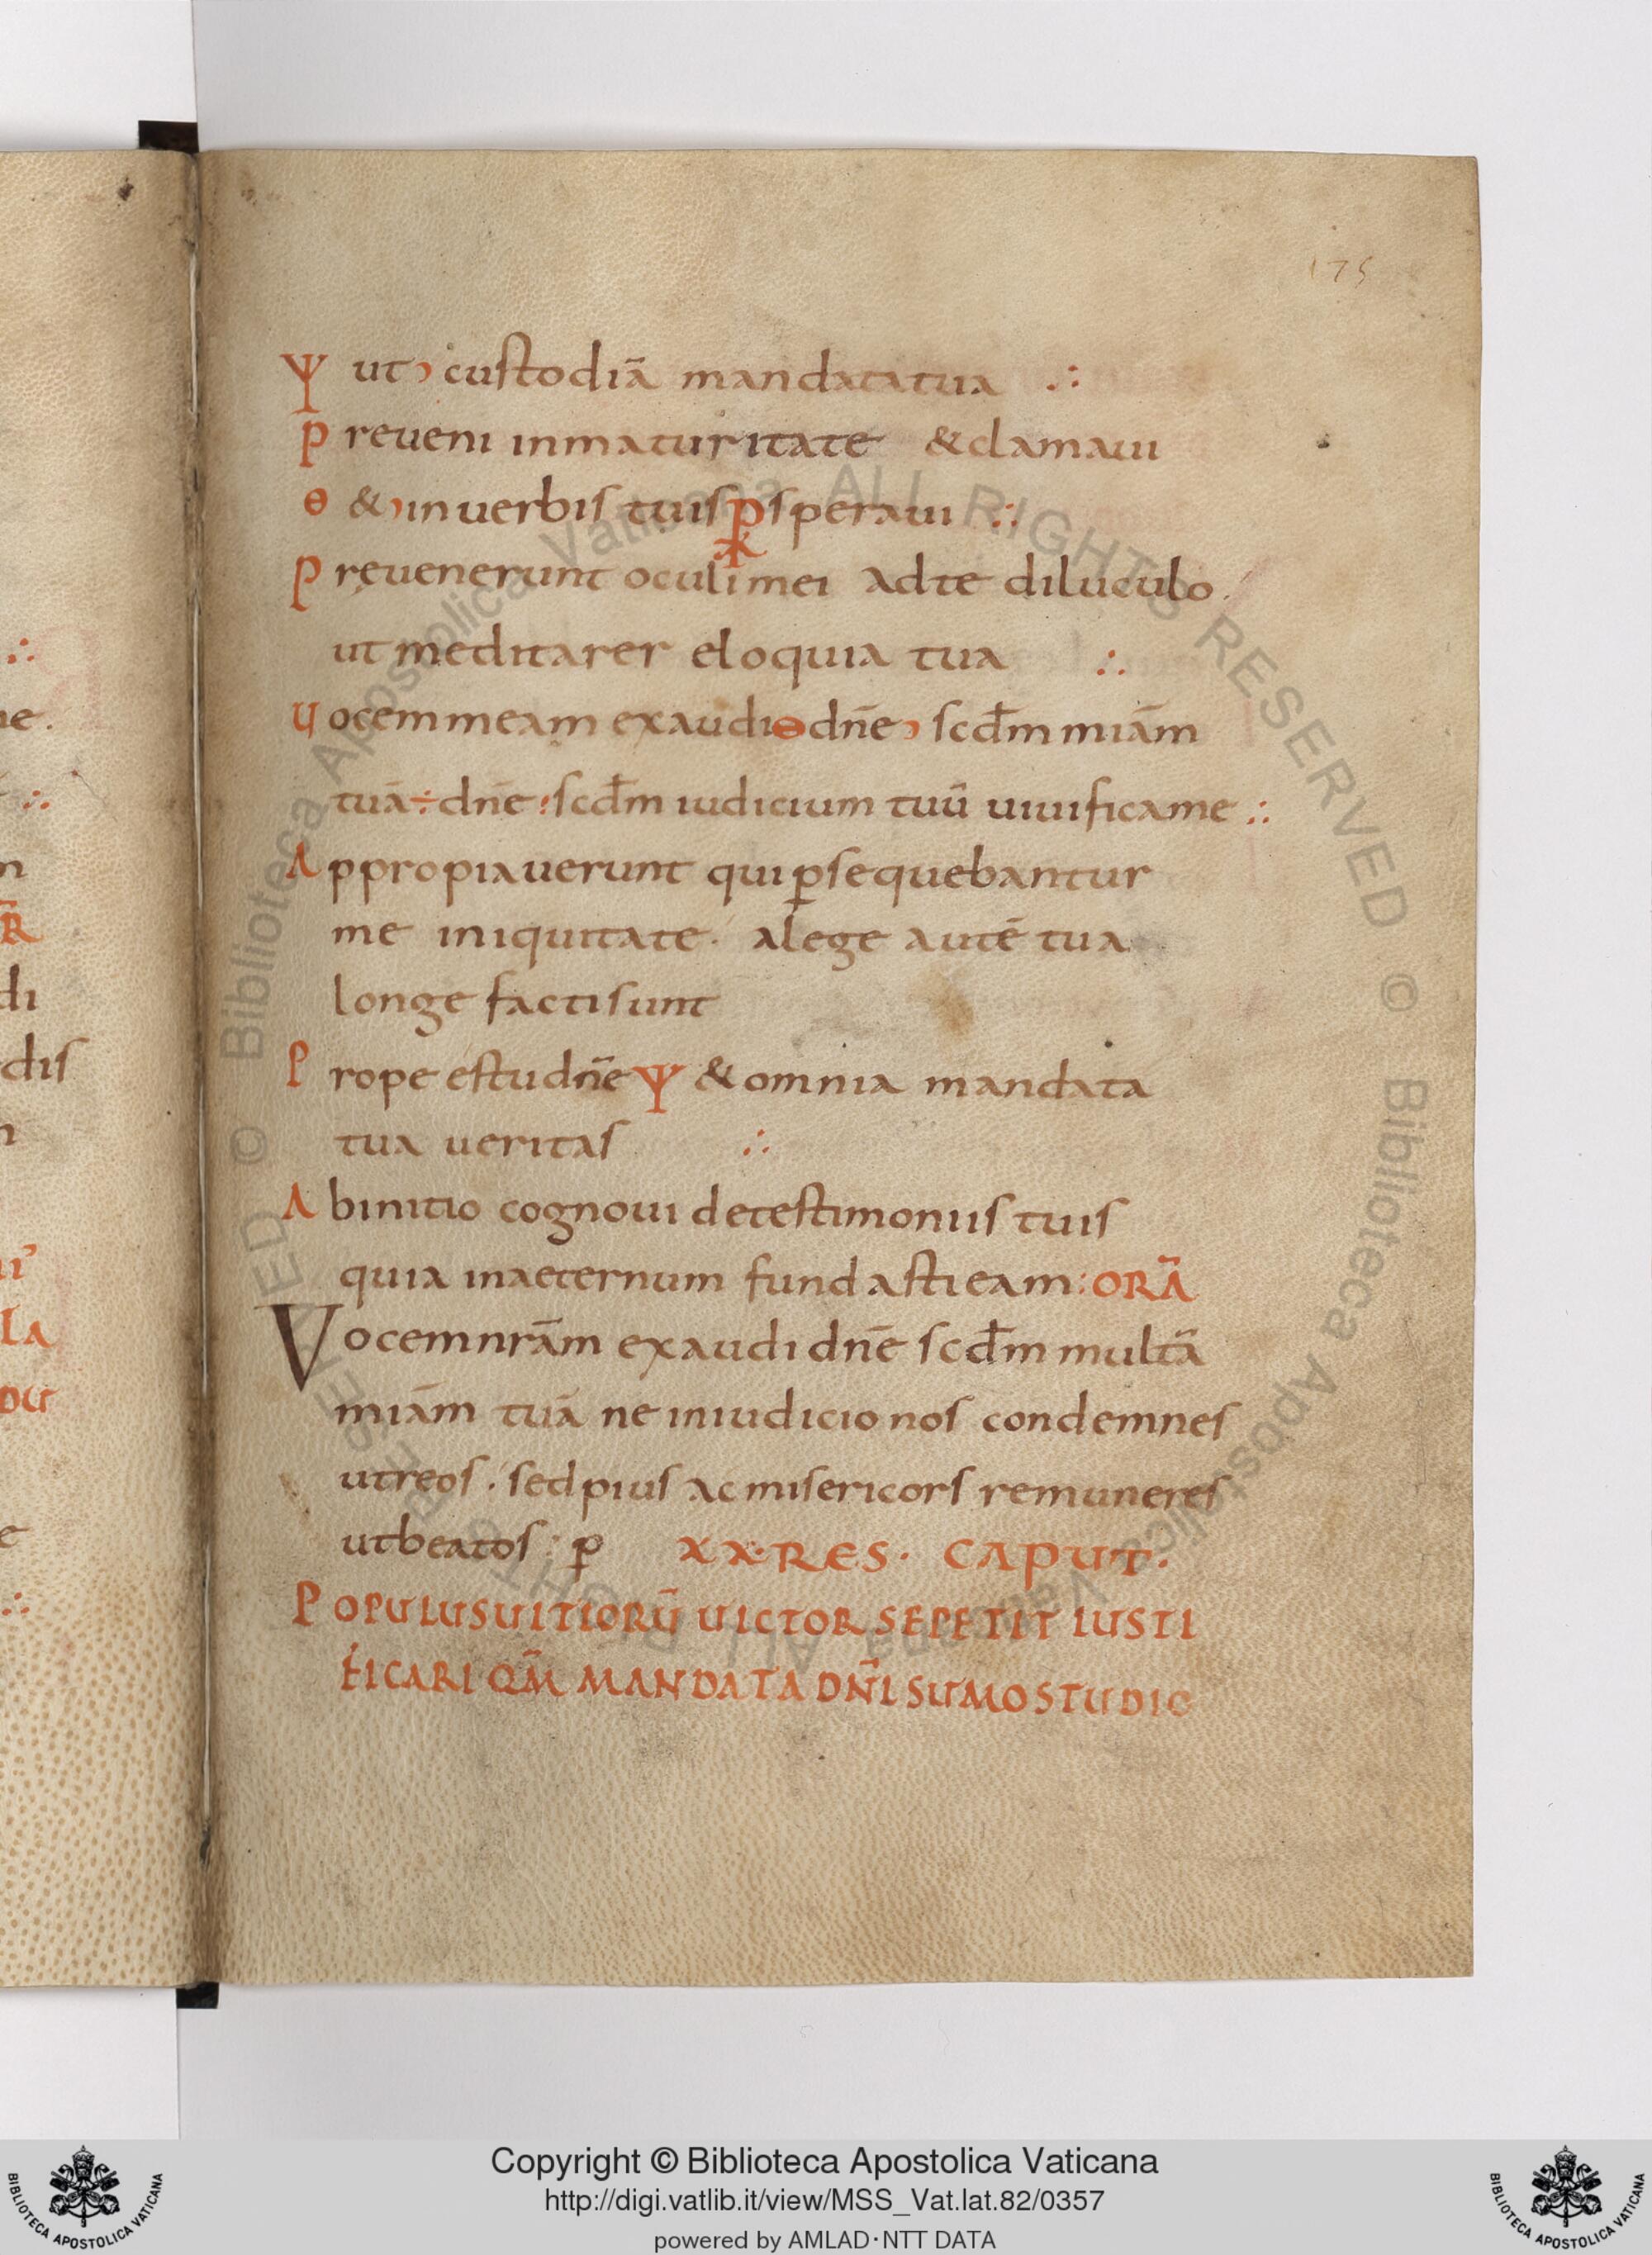 175
Ψ ut custodiā mandata tua ∴
Preueni in maturitate & clamaui
Θ & in uerbis tuis p̱ speraui ∴
Pręuenerunt oculi mei ad te diluculo.
ut meditarer eloquia tua ∴
Uocem meam exaudi Θ dn̄e scd̄m miām
tuā ÷ dn̄e : scd̄m iudicium tuū uiuifica me ∴
Appropiauerunt qui ꝑsequebantur
me iniquitate · a lege autē tua
longe facti sunt
Prope es tu dn̄e Ψ & omnia mandata
tua ueritas ∴
Ab initio cognoui de testimoniis tuis
quia in aeternum fundasti eam : ORĀ
Vocem nrām exaudi dn̄e scd̄m multā
miām tuā ne in iudicio nos condemnes
ut reos · sed pius ac misericors remuneres
ut beatos : ꝑ XX · RES · CAPUT ·
POPULUS UITIORŪ UICTOR SE PETIT IUSTI
FICARI QM̄ MANDATA DN̄I SUMO STUDIO
Copyright © Biblioteca Apostolica Vaticana
http://digi.vatlib.it/view/MSS_Vat.lat.82/0357
powered by AMLAD·NTT DATA
BIBLIOTECA APOSTOLICA VATICANA
BIBLIOTECA APOSTOLICA VATICANA
© Biblioteca Apostolica Vaticana ALL RIGHTS RESERVED © Biblioteca Apostolica Vaticana ALL RIGHTS RESERVED